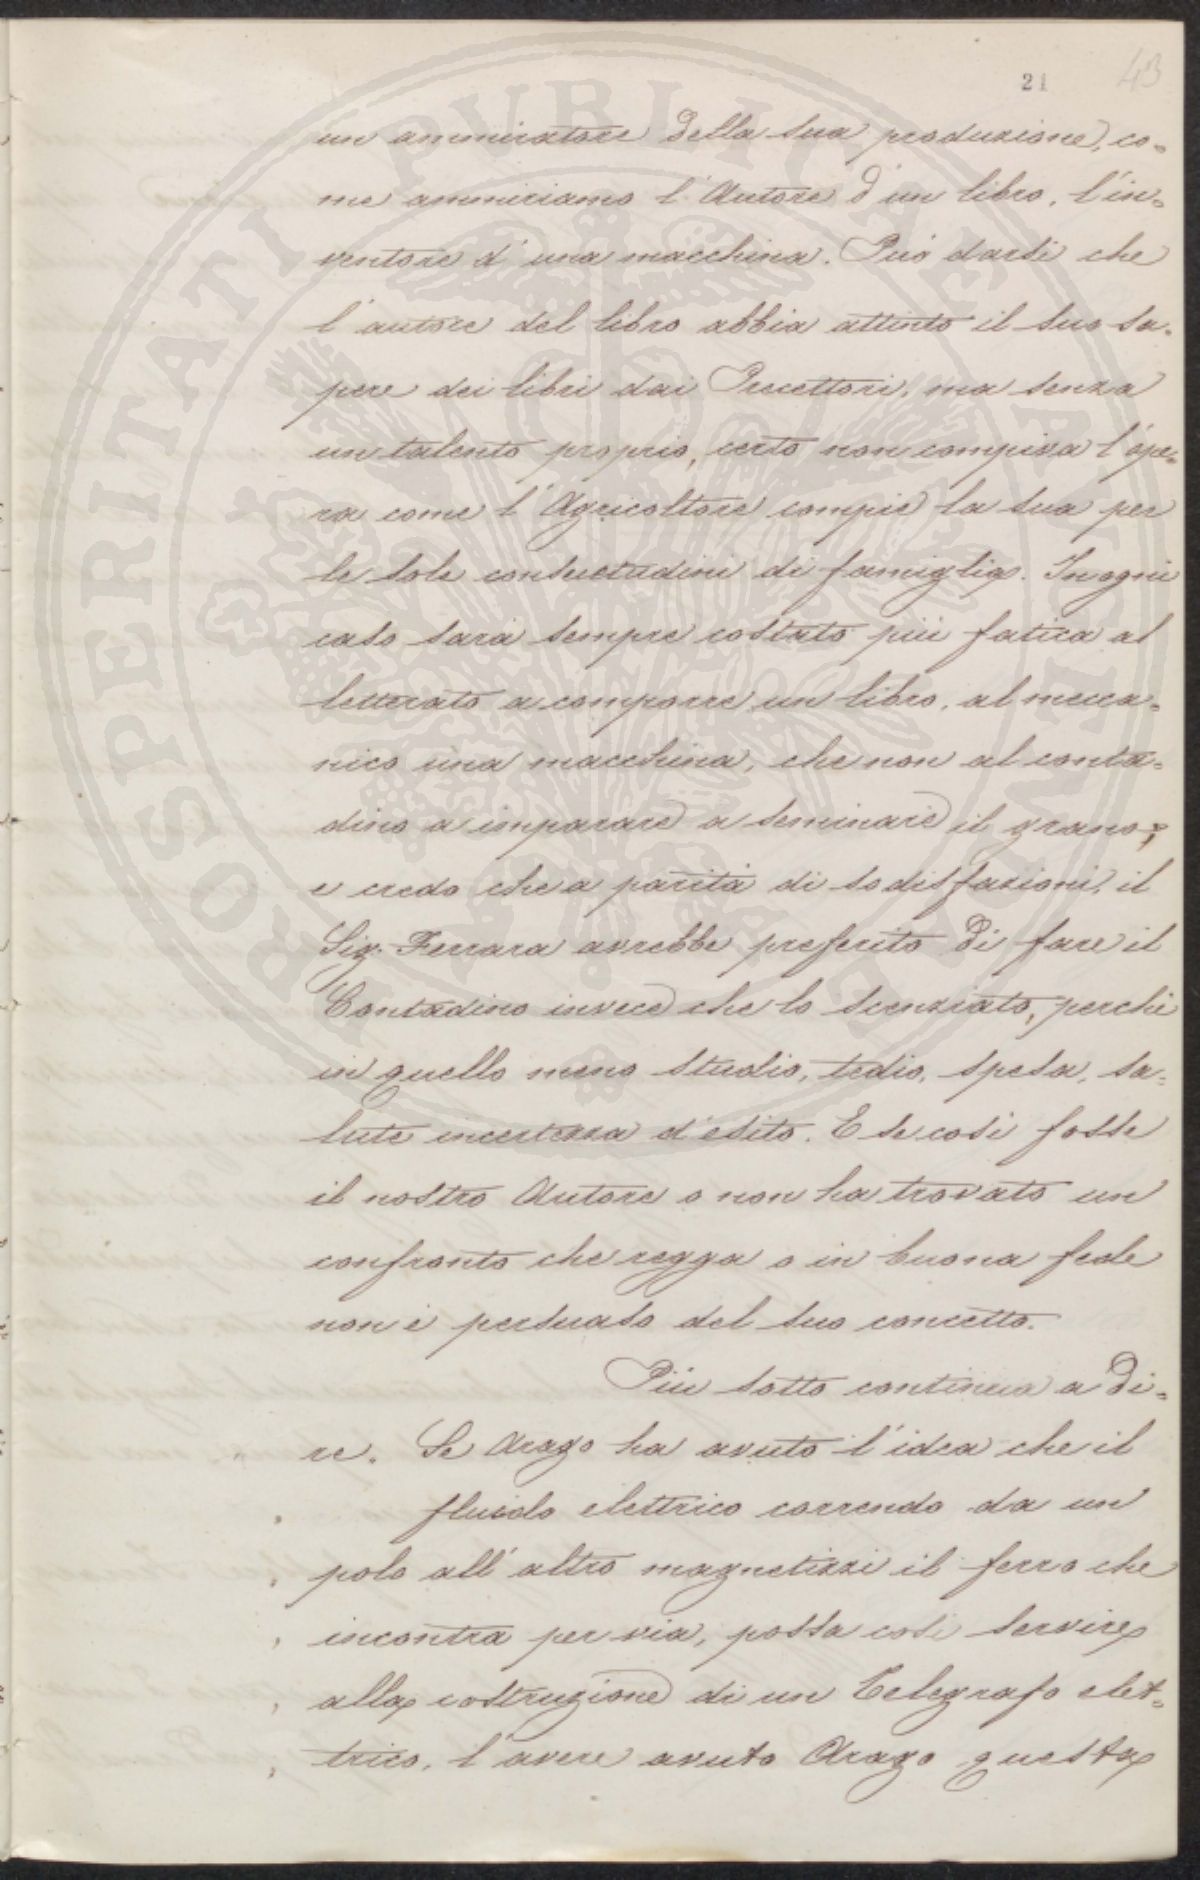 21 43
un ammiratore della sua produzione, co-
me ammiriamo l'Autore d'un libro, l'in-
ventore d'una macchina. Può darsi che
l'autore del libro abbia attinto il suo sa-
pere dei libri dai Precettori, ma senza
un talento proprio, certo non compiva l'ope-
ra come l'Agricoltore compie la sua per
le sole consuetudini di famiglia. In ogni
caso sarà sempre costato più fatica al
letterato a comporre un libro, al mecca-
nico una macchina, che non al conta-
dino a imparare a seminare il grano;
e credo che a parità di sodisfazioni, il
Sig. Ferrara avrebbe preferito di fare il
Contadino invece che lo scenziato, perchè
in quello meno studio, tedio, spesa, sa-
lute incertezza d'esito. E se così fosse
il nostro Autore o non ha trovato un
confronto che regga o in buona fede
non è persuaso del suo concetto.
Più sotto continua a di-
re. Se Arago ha avuto l'idea che il
fluido elettrico correndo da un
polo all'altro magnetizzi il ferro che
incontra per via, possa così servire
alla costruzione di un Telegrafo elet-
trico, l'avere avuto Arago questa
PROSPERITATI PUBLICAE AUGENDAE